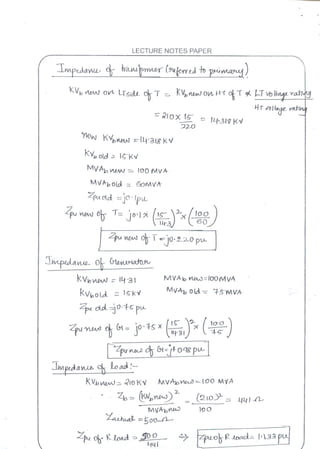 LECTURE NOTES PAPER
Impedance of transformer (referred to primary)
KVb new on LT side of T = KVb new on HT of T x LT voltage rating
HT voltage rating
= 210 x 15 = 14.318 KV
220
new KVb new = 14.318 KV
KVb old = 15 KV
MVAb new = 100 MVA
MVAb old = 60MVA
Zpu old = j0.1pu
Zpu new of T = j0.1 x (15/14.3)² x (100/60)
Zpu new of T = j0.220 pu
Impedance of Generator
KVb new = 14.31 MVAb new = 100MVA
KVb old = 15KV MVAb old = 75MVA
Zpu old = j0.75 pu
Zpu new of G = j0.75 x (15/14.31)² x (100/75)
Zpu new of G = j1.098 pu
Impedance of load :-
KVb new = 210 KV MVAb new = 100 MVA
Zb = (KVb new)² = (210)² = 441 Ω
MVAb new 100
Zactual = 500 Ω
Zpu of R load = 500 ⇒ Zpu of R load = 1.133 pu
441